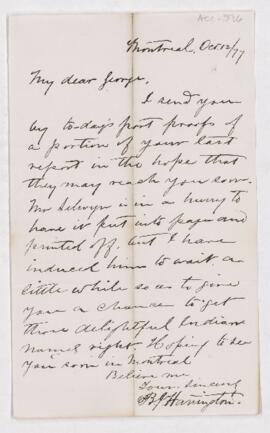 ACC-526
Montreal, Oct 12/77
My dear George,
I send you
by to-day's post proofs of
a portion of your last
report in the hope that
they may reach you soon.
Mr Selwyn is in a hurry to
have it put into page and
printed off, but I have
induced him to wait a
little while so as to give
you a chance to get
those delightful Indian
names right. Hoping to see
you soon in Montreal
Believe me
Yours sincerely
B J Harrington.